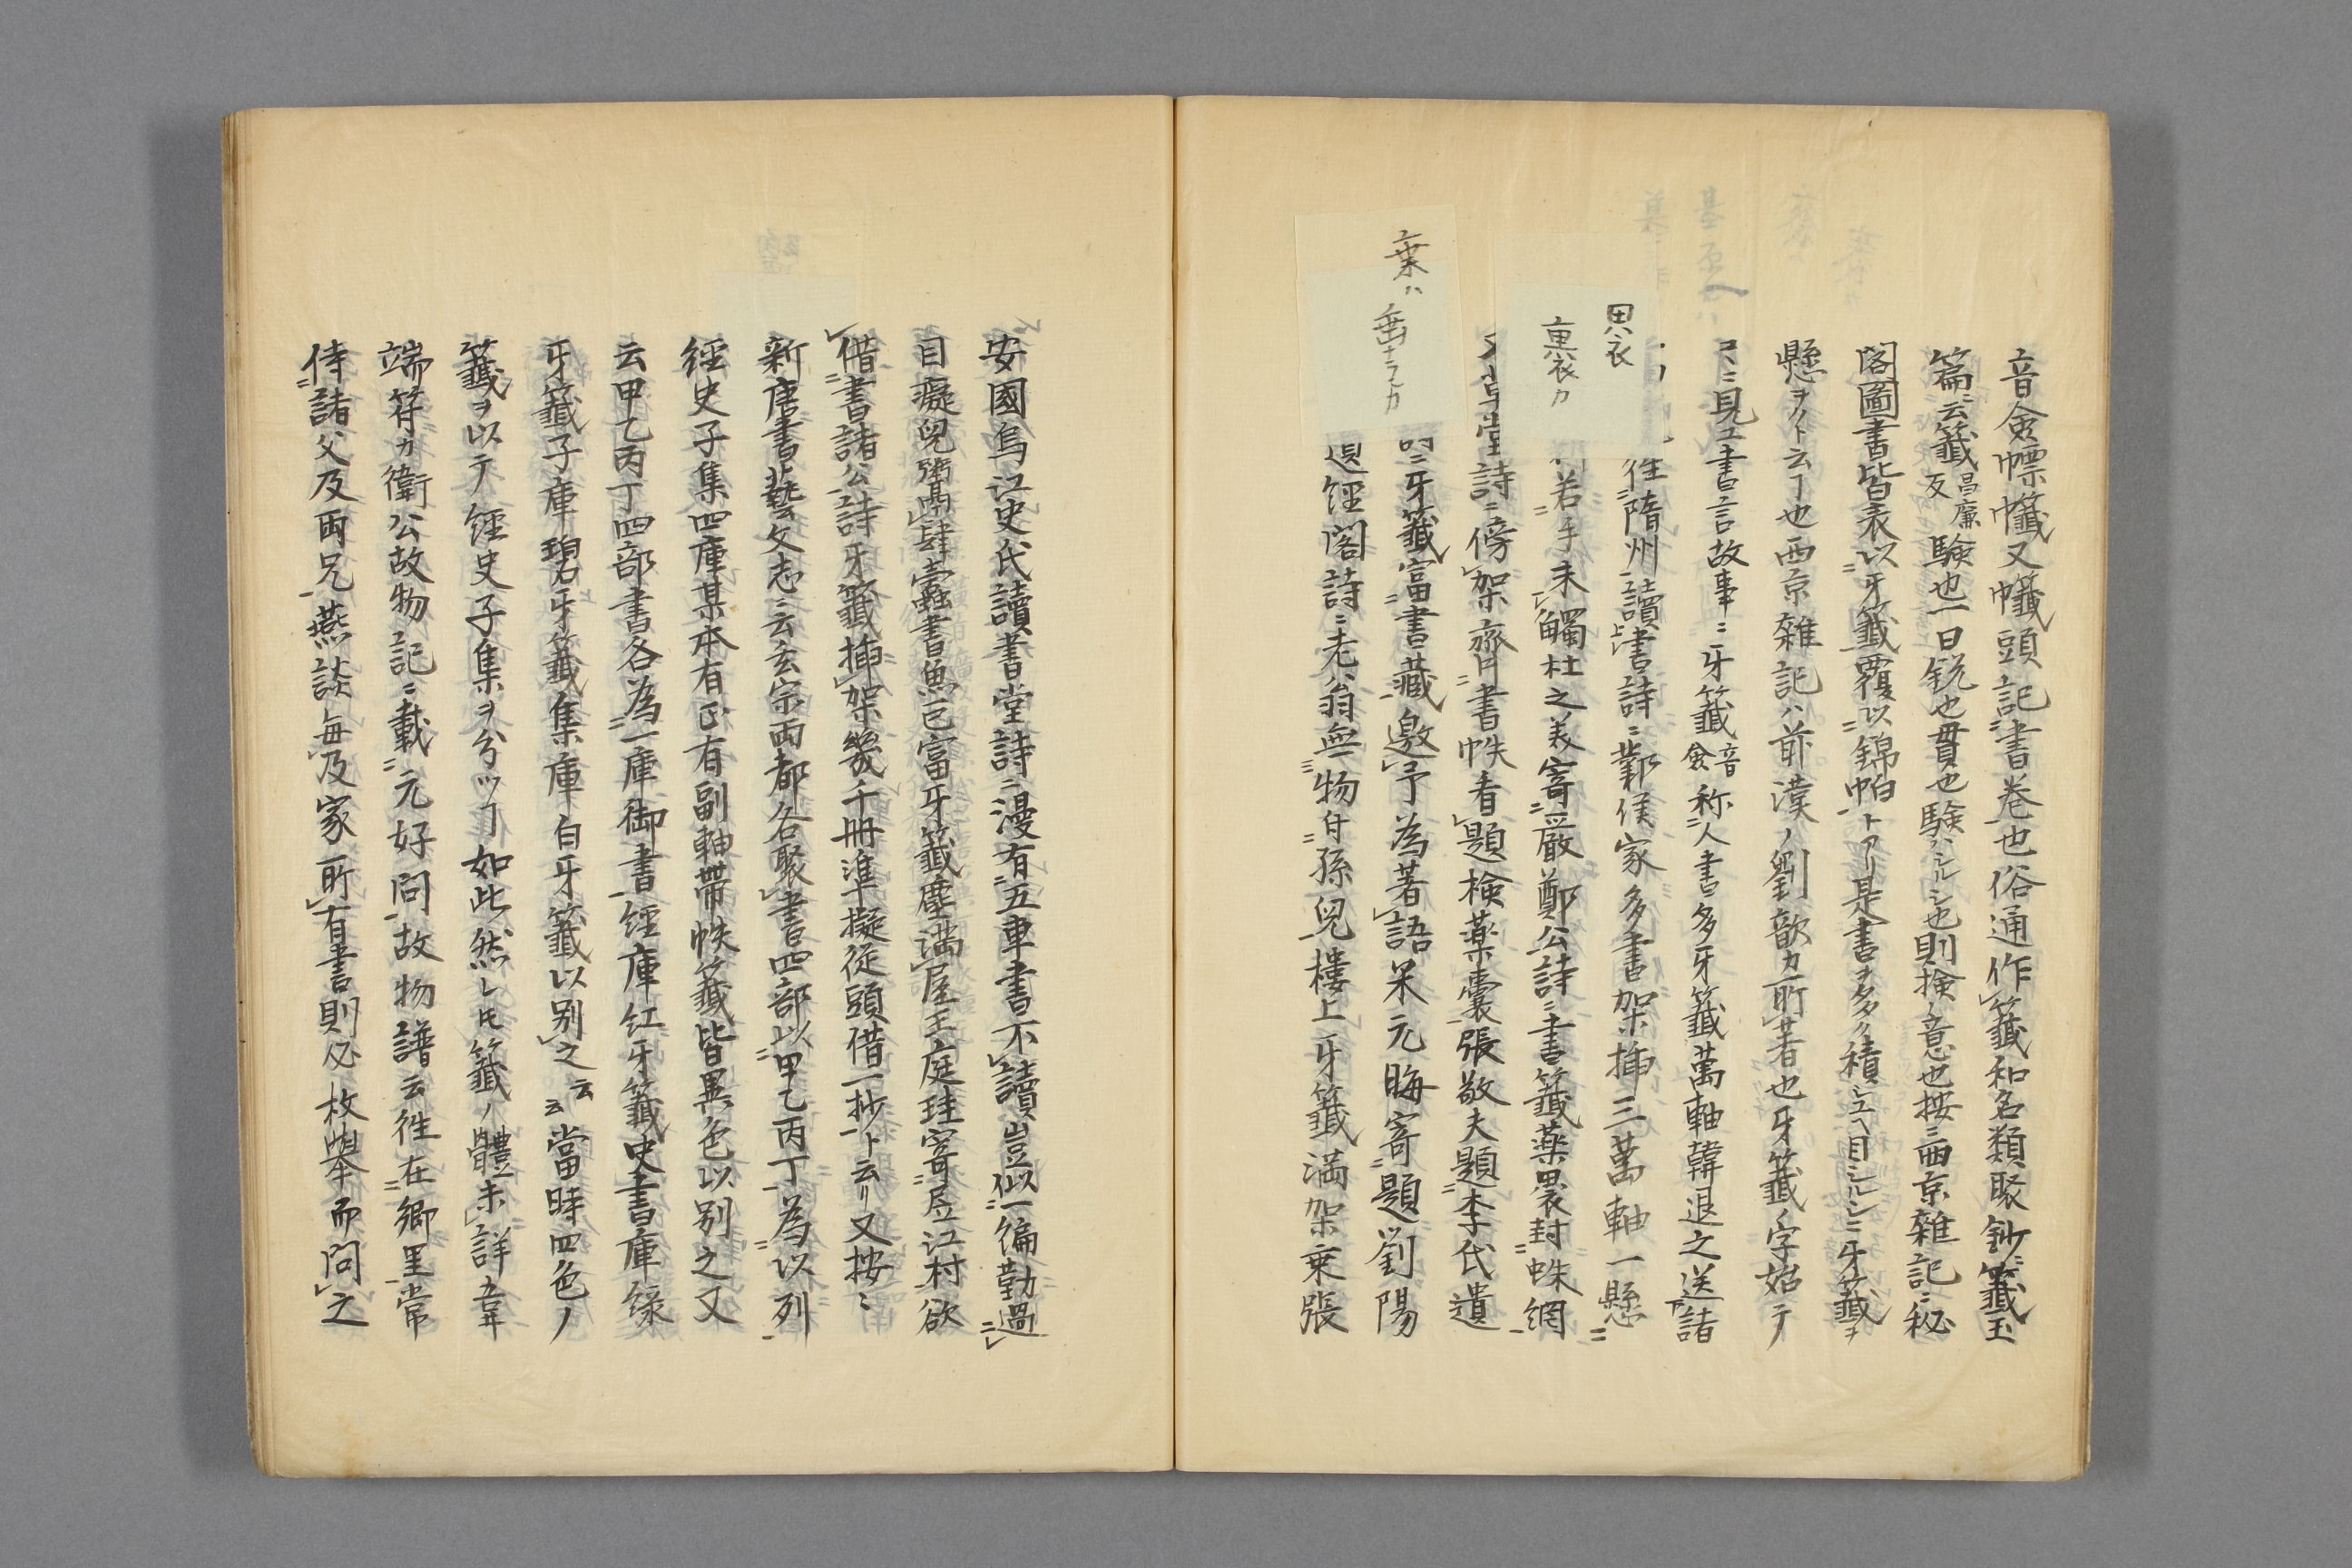 音僉幖籤又幟籤頭記書巻也俗通作籤和名類聚鈔籤玉
篇云籤昌廉反驗也一曰鋭也貫也驗ハシルシ也則検ノ意也按ニ西京雜記ニ秘
閣圖書皆表以牙籤覆以錦帕トアリ是書ヲ多ク積ユヘ目シルシニ牙籤ヲ
懸ヲクト云フ也西京雜記ハ前漢ノ劉歆カ所著也牙籤ノ字始テ
コヽニ見ユ書言故事ニ牙籤音僉称人書多牙籤萬軸韓退之送諸
往隋州讀書詩ニ鄴侯家多書架挿三萬軸一懸
若手未觸杜之美寄嚴鄭公詩ニ書籤薬裹封蛛網
草堂詩ニ傍架齊書帙看題検薬嚢張敬夫題李氏遺
詩ニ牙籤富書藏邀予為著語宋元晦寄題劉陽
遺經閣詩ニ老翁無物付孫兒樓上牙籤満架乗張
思衣
裏衣カ
葉ハ
垂ナラン力
安國烏江史氏讀書堂詩ニ漫有五車書不讀豈似一編勤過
目癡兒鬻肆蠹書魚已富牙籤塵満屋王庭珪寄居江村欲
借書諸公詩牙籤挿架幾千冊準擬従頭借一抄ト云リ又按ニ
新唐書藝文志ニ云玄宗両都各聚書四部以甲乙丙丁為以列
經史子集四庫某本有正有副軸帶帙籤皆異色以別之又
云甲乙丙丁四部書各為一庫御書經庫紅牙籤史書庫緑
牙籤子庫碧牙籤集庫白牙籤以別之云云當時四色ノ
籤ヲ以テ經史子集ヲ分ツヿ如此然レ𪜈籤ノ體未詳韋
端符カ衛公故物記ニ載元好問故物譜云徃在郷里常
侍諸父及両兄燕談毎及家所有書則必枚舉而問之